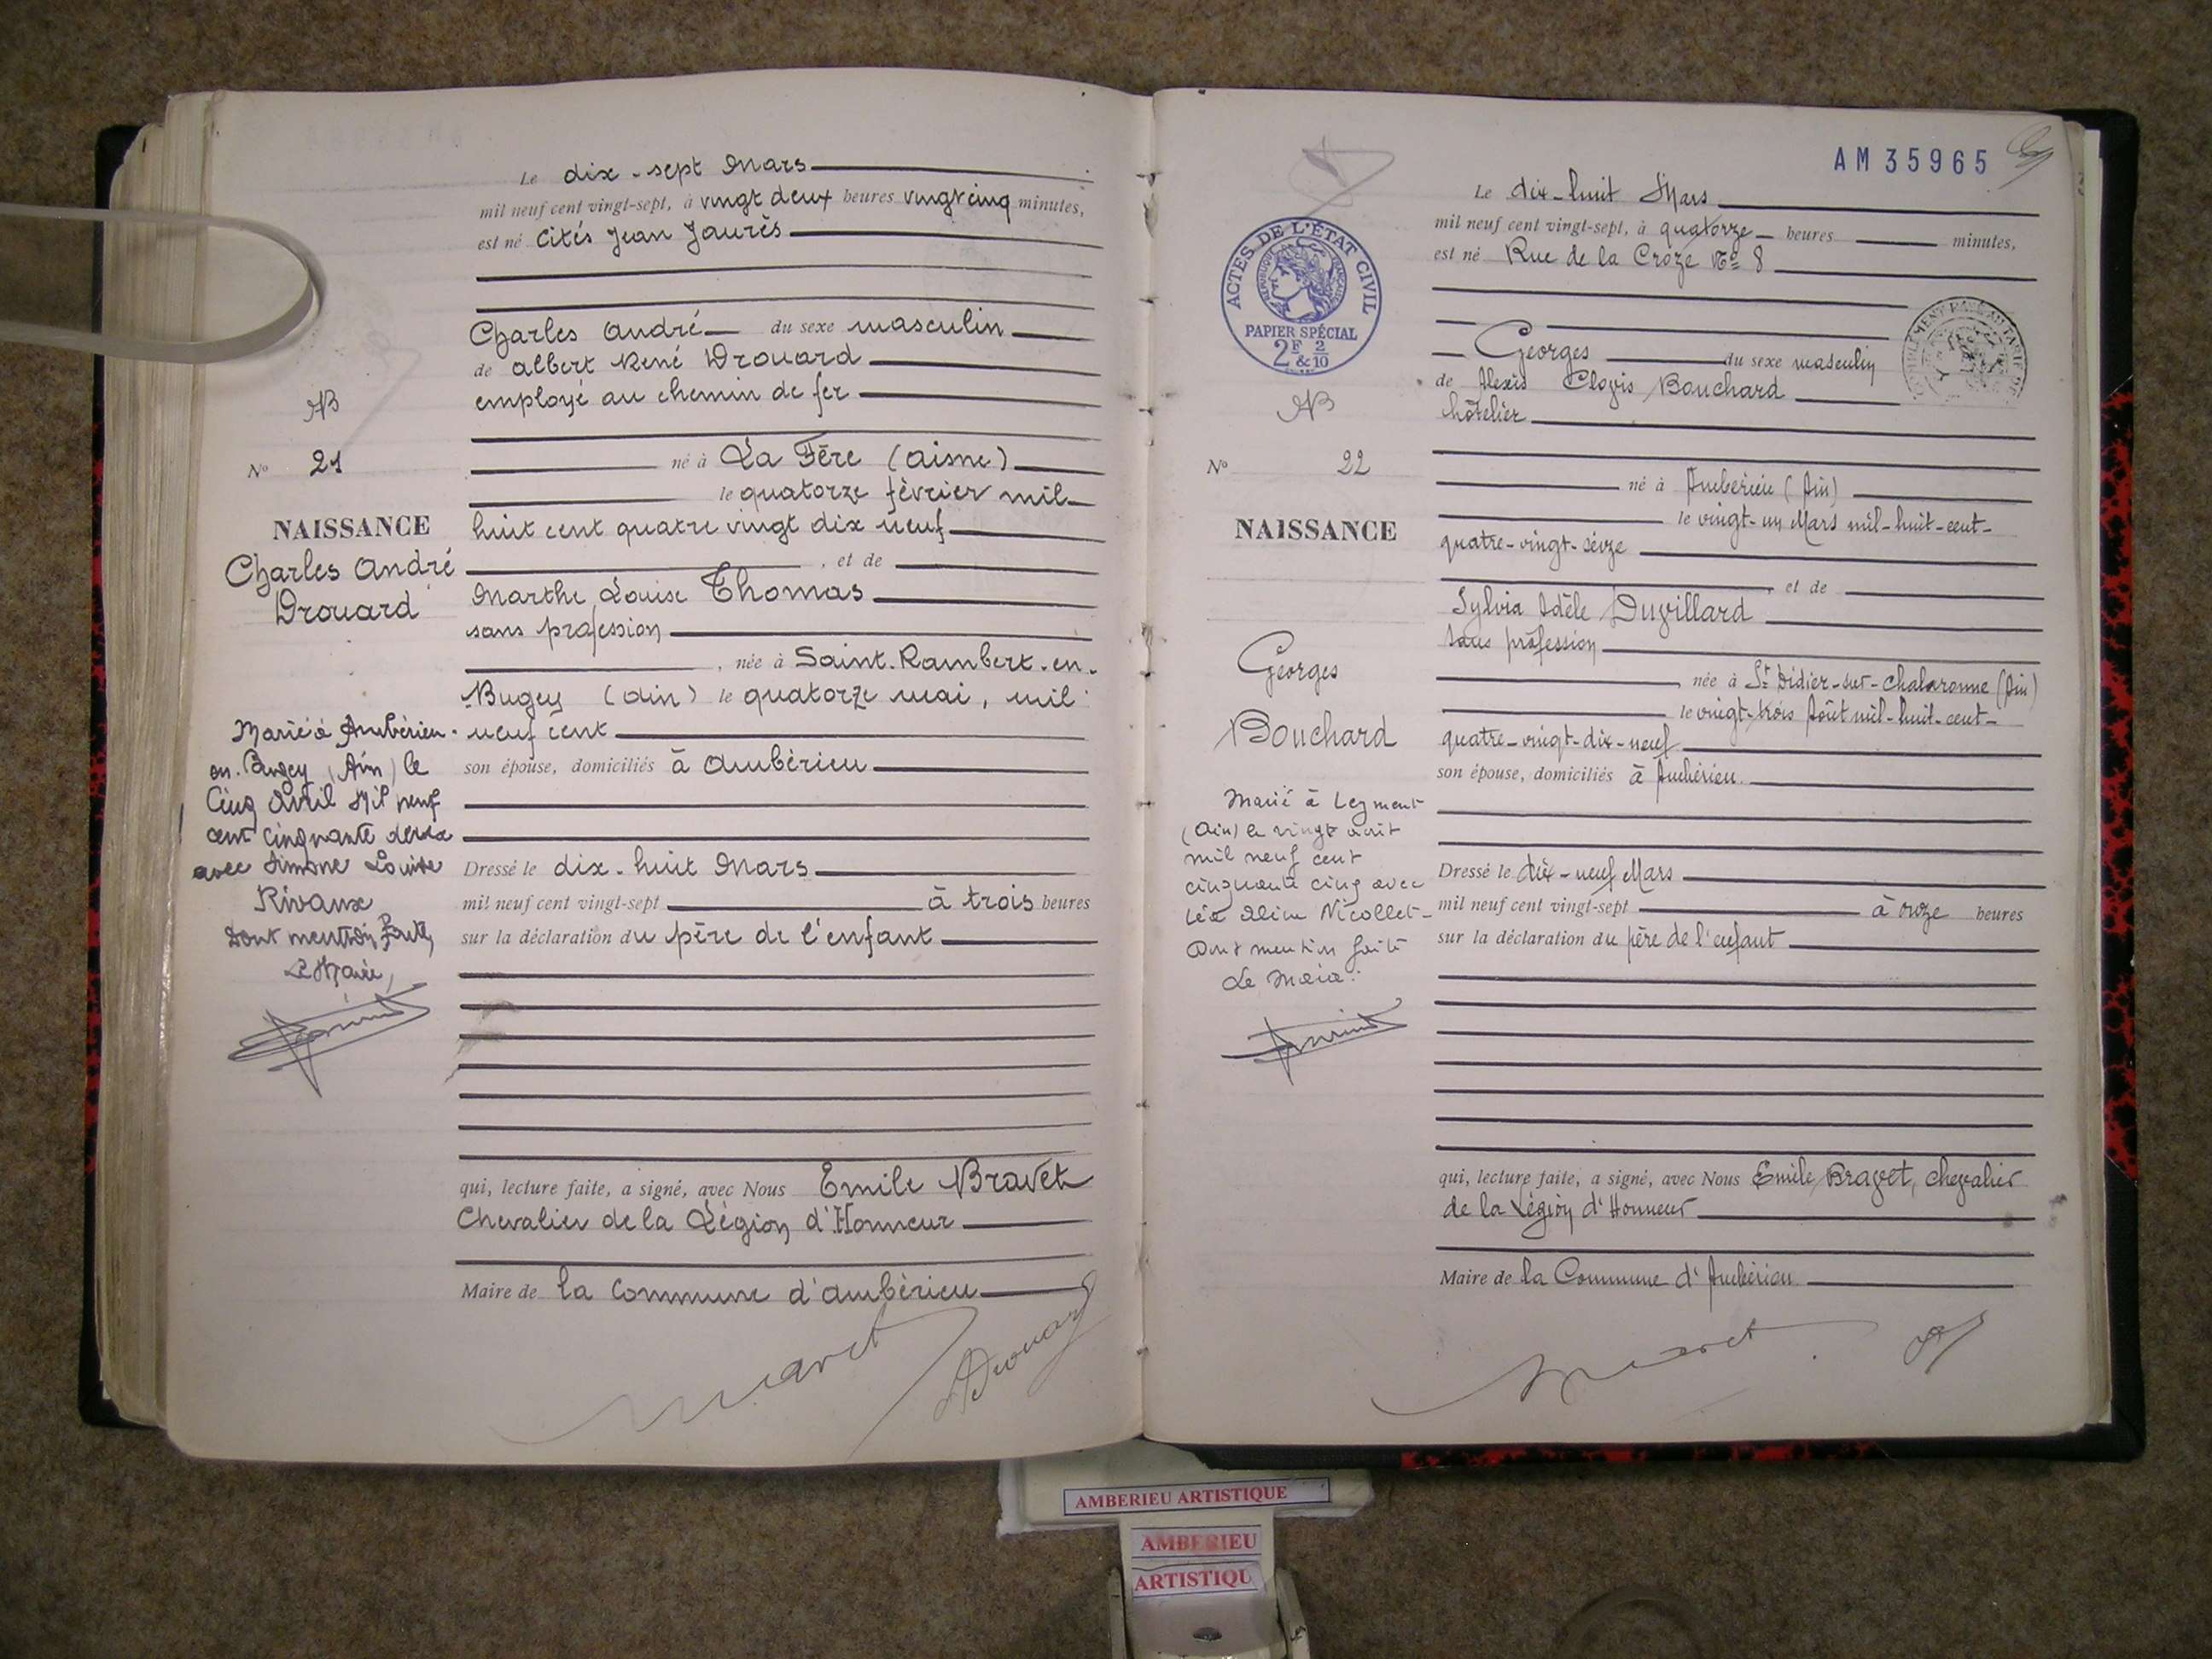 Le dix-sept Mars
mil neuf cent vingt-sept, à vingt deux heures vingt cinq minutes,
est né Cités Jean Jaurès
Charles André du sexe masculin
de Albert René Drouard
employé au chemin de fer
né à La Fère (Aisne)
le quatorze février mil
huit cent quatre vingt dix neuf
, et de
Marthe Louise Thomas
sans profession
, née à Saint-Rambert-en-
Bugey (Ain) le quatorze mai, mil
neuf cent
son épouse, domiciliés à Ambérieu
Dressé le dix-huit Mars
mil neuf cent vingt-sept à trois heures
sur la déclaration du père de l'enfant
qui, lecture faite, a signé, avec Nous Emile Bravet
Chevalier de la Légion d'Honneur
Maire de la Commune d'Ambérieu
Drouard
No 21
NAISSANCE
Charles André
Drouard
Marié à Ambérieu-
en-Bugey (Ain) le
cinq Avril Mil neuf
cent cinquante deux
avec Simone Louise
Rivaux
Dont mention faite,
Le Maire,
AM 35965
Le dix-huit Mars
mil neuf cent vingt-sept, à quatorze heures minutes,
est né Rue de la Croze No 8
Georges du sexe masculin
de Alexis Clovis Bouchard
hôtelier
né à Ambérieu (Ain)
le vingt-un Mars mil-huit-cent-
quatre-vingt-seize
et de
Sylvia Adèle Duvillard
sans profession
née à St Didier-sur-Chalaronne (Ain)
le vingt-trois Août mil-huit-cent-
quatre-vingt-dix-neuf
son épouse, domiciliés à Ambérieu.
Dressé le dix-neuf Mars
mil neuf cent vingt-sept à onze heures
sur la déclaration du père de l'enfant
qui, lecture faite, a signé, avec Nous Emile Bravet, Chevalier
de la Légion d'Honneur
Maire de la Commune d'Ambérieu
ACTES DE L'ÉTAT CIVIL
RÉPUBLIQUE FRANÇAISE
PAPIER SPÉCIAL
2F & 2/10
No 22
NAISSANCE
Georges
Bouchard
Marié à Leyment
(Ain) le vingt août
mil neuf cent
cinquante cinq avec
Nicollet
Dont mention faite
Le Maire:
AMBERIEU ARTISTIQUE
AMBERIEU
ARTISTIQU